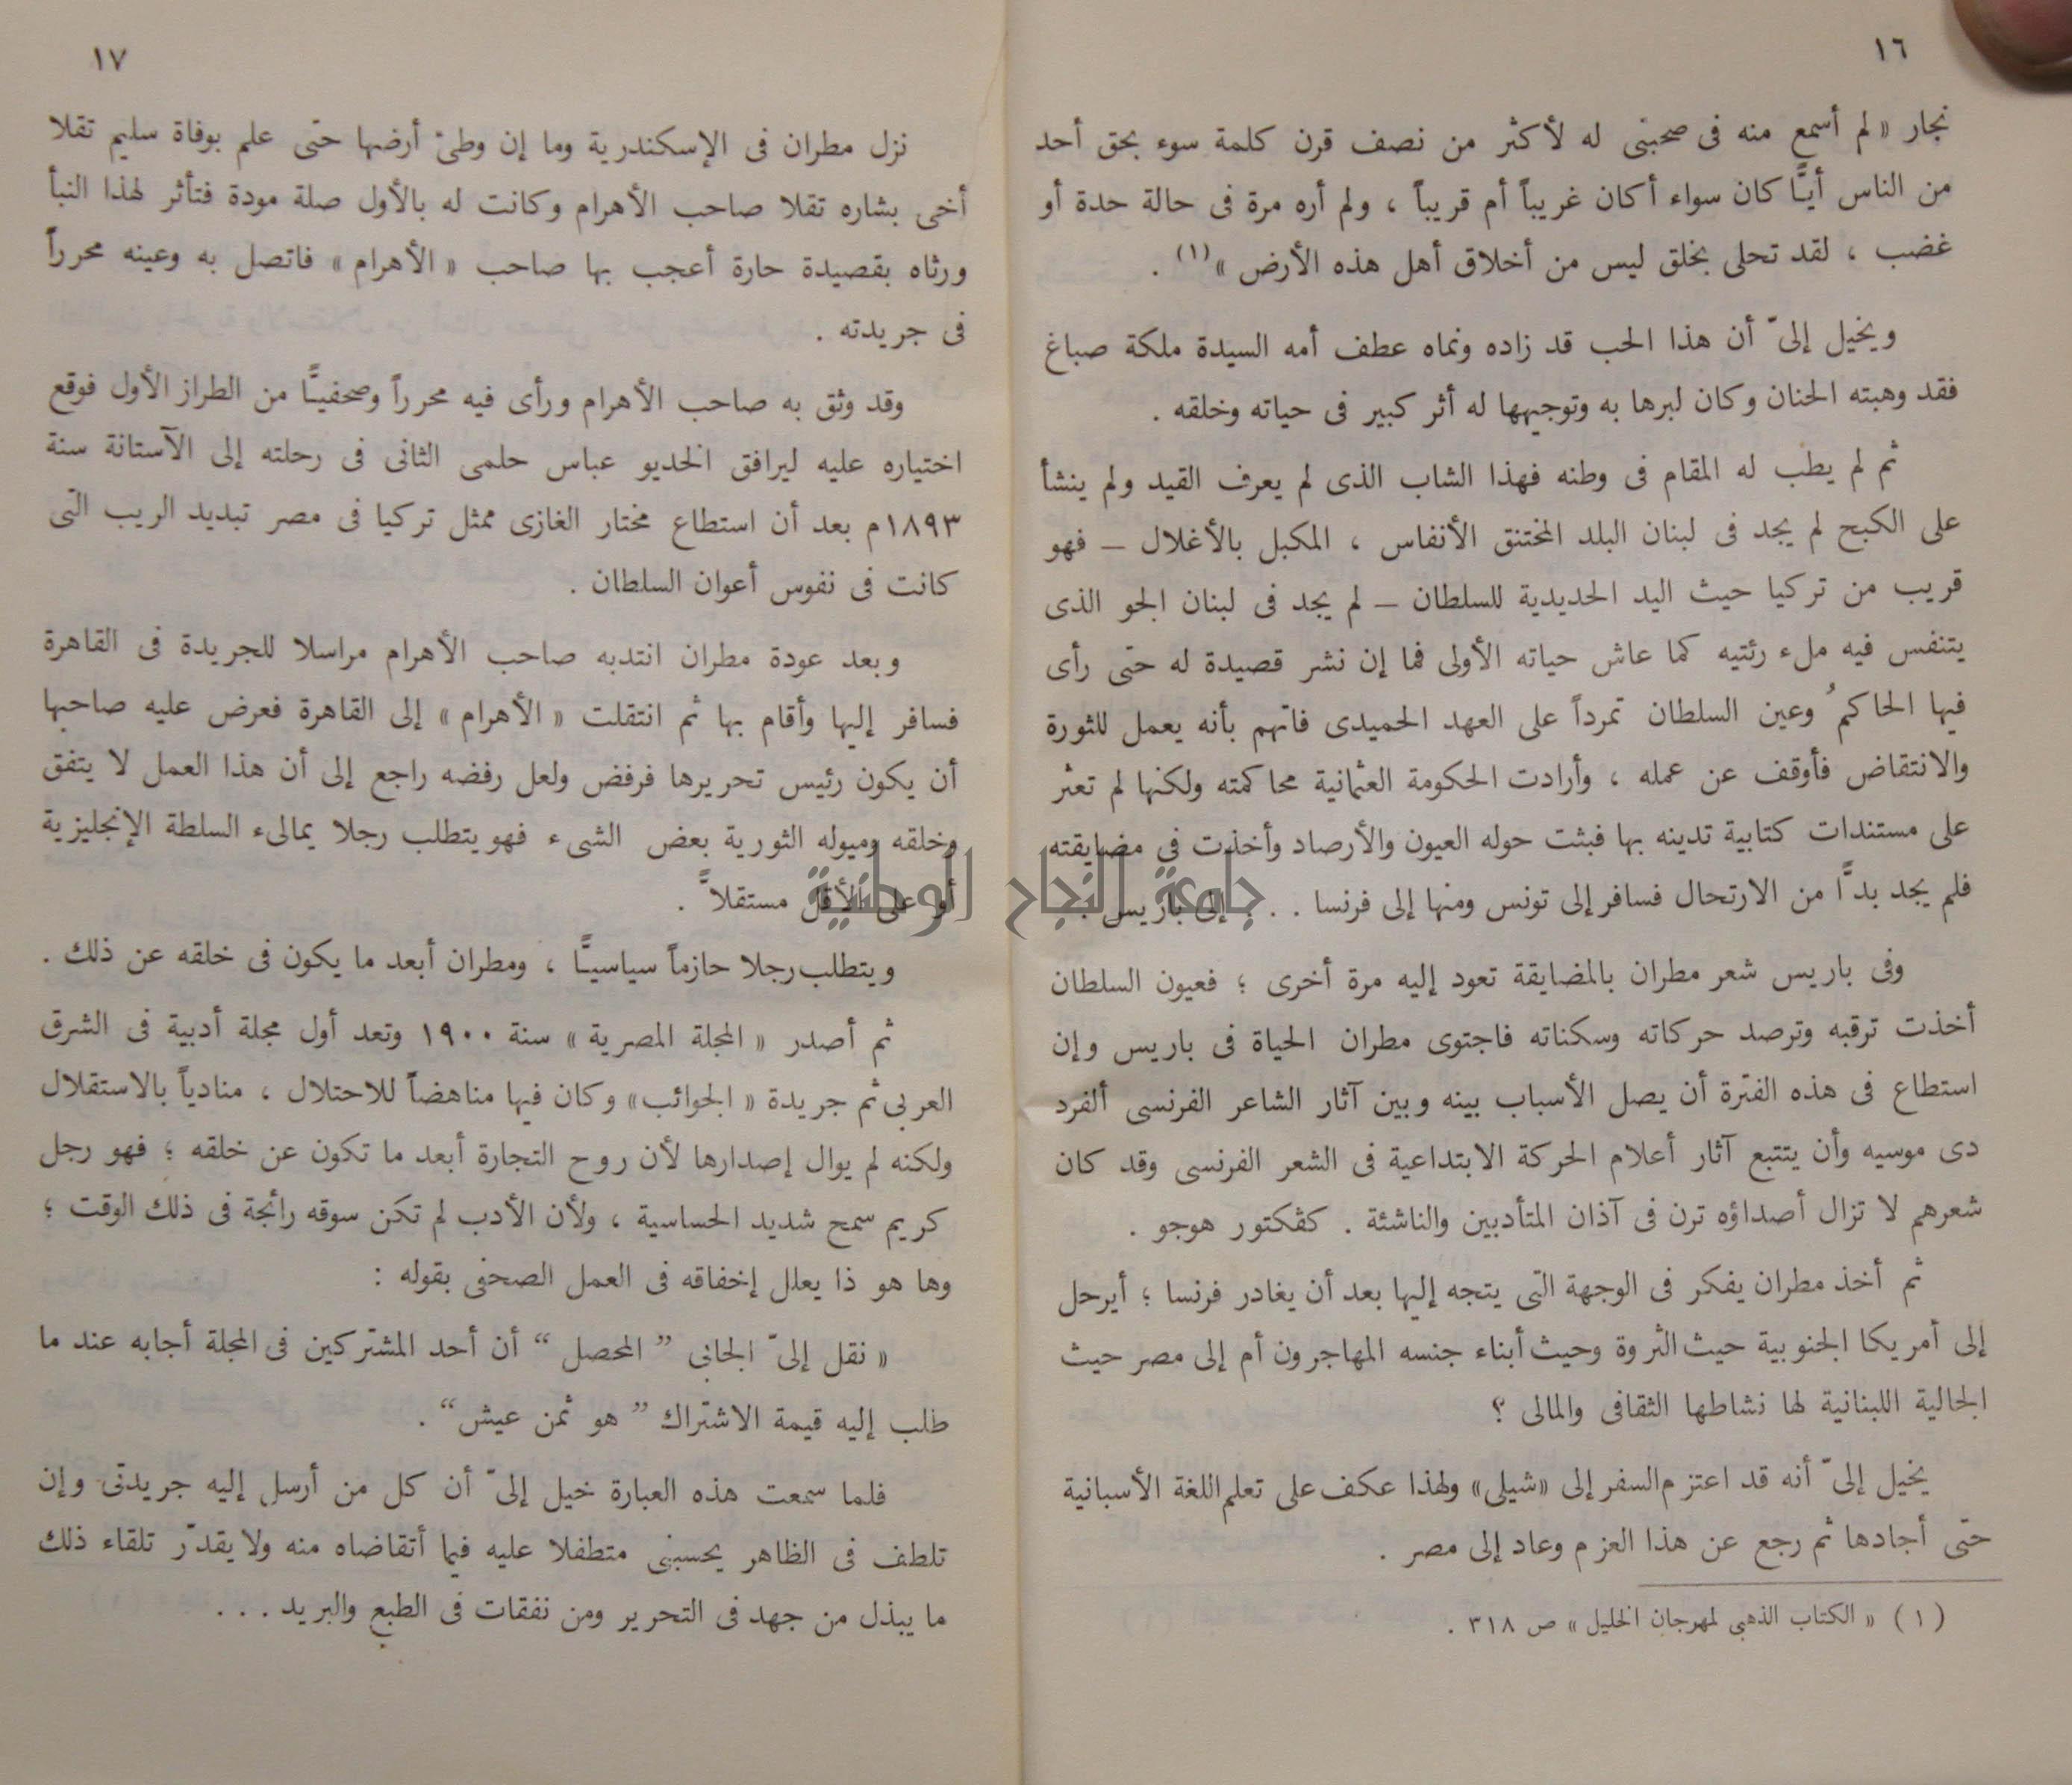 ١٦
نجار « لم أسمع منه فى صحبتى له لأكثر من نصف قرن كلمة سوء بحق أحد
من الناس أيًّا كان سواء أكان غريباً أم قريباً ، ولم أره مرة فى حالة حدة أو
غضب ، لقد تحلى بخلق ليس من أخلاق أهل هذه الأرض »(١) .
ويخيل إلىّ أن هذا الحب قد زاده ونماه عطف أمه السيدة ملكة صباغ
فقد وهبته الحنان وكان لبرها به وتوجيهها له أثر كبير فى حياته وخلقه .
ثم لم يطب له المقام فى وطنه فهذا الشاب الذى لم يعرف القيد ولم ينشأ
على الكبح لم يجد فى لبنان البلد المختنق الأنفاس ، المكبل بالأغلال – فهو
قريب من تركيا حيث اليد الحديدية للسلطان – لم يجد فى لبنان الجو الذى
يتنفس فيه ملء رئتيه كما عاش حياته الأولى فما إن نشر قصيدة له حتى رأى
فيها الحاكمُ وعين السلطان تمرداً على العهد الحميدى فاتهم بأنه يعمل للثورة
والانتقاض فأوقف عن عمله ، وأرادت الحكومة العثمانية محاكمته ولكنها لم تعثر
على مستندات كتابية تدينه بها فبثت حوله العيون والأرصاد وأخذت فى مضايقته
فلم يجد بدًّا من الارتحال فسافر إلى تونس ومنها إلى فرنسا . . . إلى باريس .
وفى باريس شعر مطران بالمضايقة تعود إليه مرة أخرى ؛ فعيون السلطان
أخذت ترقبه وترصد حركاته وسكناته فاجتوى مطران الحياة فى باريس وإن
استطاع فى هذه الفترة أن يصل الأسباب بينه وبين آثار الشاعر الفرنسى ألفرد
دى موسيه وأن يتتبع آثار أعلام الحركة الابتداعية فى الشعر الفرنسى وقد كان
شعرهم لا تزال أصداؤه ترن فى آذان المتأدبين والناشئة . كڤكتور هوجو .
ثم أخذ مطران يفكر فى الوجهة التى يتجه إليها بعد أن يغادر فرنسا ؛ أيرحل
إلى أمريكا الجنوبية حيث الثروة وحيث أبناء جنسه المهاجرون أم إلى مصر حيث
الجالية اللبنانية لها نشاطها الثقافى والمالى ؟
يخيل إلىّ أنه قد اعتزم السفر إلى «شيلى» ولهذا عكف على تعلم اللغة الأسبانية
حتى أجادها ثم رجع عن هذا العزم وعاد إلى مصر .
(١) « الكتاب الذهبى لمهرجان الخليل » ص ٣١٨ .
١٧
نزل مطران فى الإسكندرية وما إن وطئ أرضها حتى علم بوفاة سليم تقلا
أخى بشاره تقلا صاحب الأهرام وكانت له بالأول صلة مودة فتأثر لهذا النبأ
ورثاه بقصيدة حارة أعجب بها صاحب « الأهرام » فاتصل به وعينه محرراً
فى جريدته .
وقد وثق به صاحب الأهرام ورأى فيه محرراً وصحفيًّا من الطراز الأول فوقع
اختياره عليه ليرافق الخديو عباس حلمى الثانى فى رحلته إلى الآستانة سنة
١٨٩٣م بعد أن استطاع مختار الغازى ممثل تركيا فى مصر تبديد الريب التى
كانت فى نفوس أعوان السلطان .
وبعد عودة مطران انتدبه صاحب الأهرام مراسلا للجريدة فى القاهرة
فسافر إليها وأقام بها ثم انتقلت « الأهرام » إلى القاهرة فعرض عليه صاحبها
أن يكون رئيس تحريرها فرفض ولعل رفضه راجع إلى أن هذا العمل لا يتفق
وخلقه وميوله الثورية بعض الشىء فهو يتطلب رجلا يمالىء السلطة الإنجليزية
أو على الأقل مستقلاًّ .
ويتطلب رجلا حازماً سياسيًّا ، ومطران أبعد ما يكون فى خلقه عن ذلك .
ثم أصدر « المجلة المصرية » سنة ١٩٠٠ وتعد أول مجلة أدبية فى الشرق
العربى ثم جريدة « الجوائب» وكان فيها مناهضاً للاحتلال ، منادياً بالاستقلال
ولكنه لم يوال إصدارها لأن روح التجارة أبعد ما تكون عن خلقه ؛ فهو رجل
كريم سمح شديد الحساسية ، ولأن الأدب لم تكن سوقه رائجة فى ذلك الوقت ؛
وها هو ذا يعلل إخفاقه فى العمل الصحفى بقوله :
« نقل إلىّ الجابى ” المحصل “ أن أحد المشتركين فى المجلة أجابه عند ما
طلب إليه قيمة الاشتراك ” هو ثمن عيش“ .
فلما سمعت هذه العبارة خيل إلىّ أن كل من أرسل إليه جريدتى وإن
تلطف فى الظاهر يحسبنى متطفلا عليه فيما أتقاضاه منه ولا يقدّر تلقاء ذلك
ما يبذل من جهد فى التحرير ومن نفقات فى الطبع والبريد . . .
جامعة النجاح الوطنية